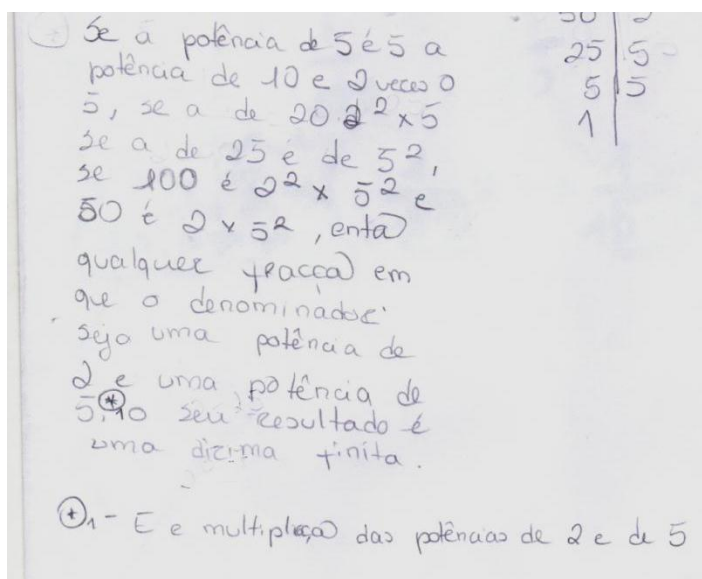 Se a potência de 5 é 5 a
potência de 10 e 2 veces o
5, se a de 20 2² x 5
se a de 25 é de 5²,
se 100 é 2² x 5² e
50 é 2 x 5², entã
qualquer fracçã em
que o denominador
seja uma potência de
2 e uma potência de
5,⊛10 seu resultado é
uma dizima finita.
⊛1 - E e multiplicaçã das potências de 2 e de 5
50 | 2
25 | 5
5 | 5
1 |